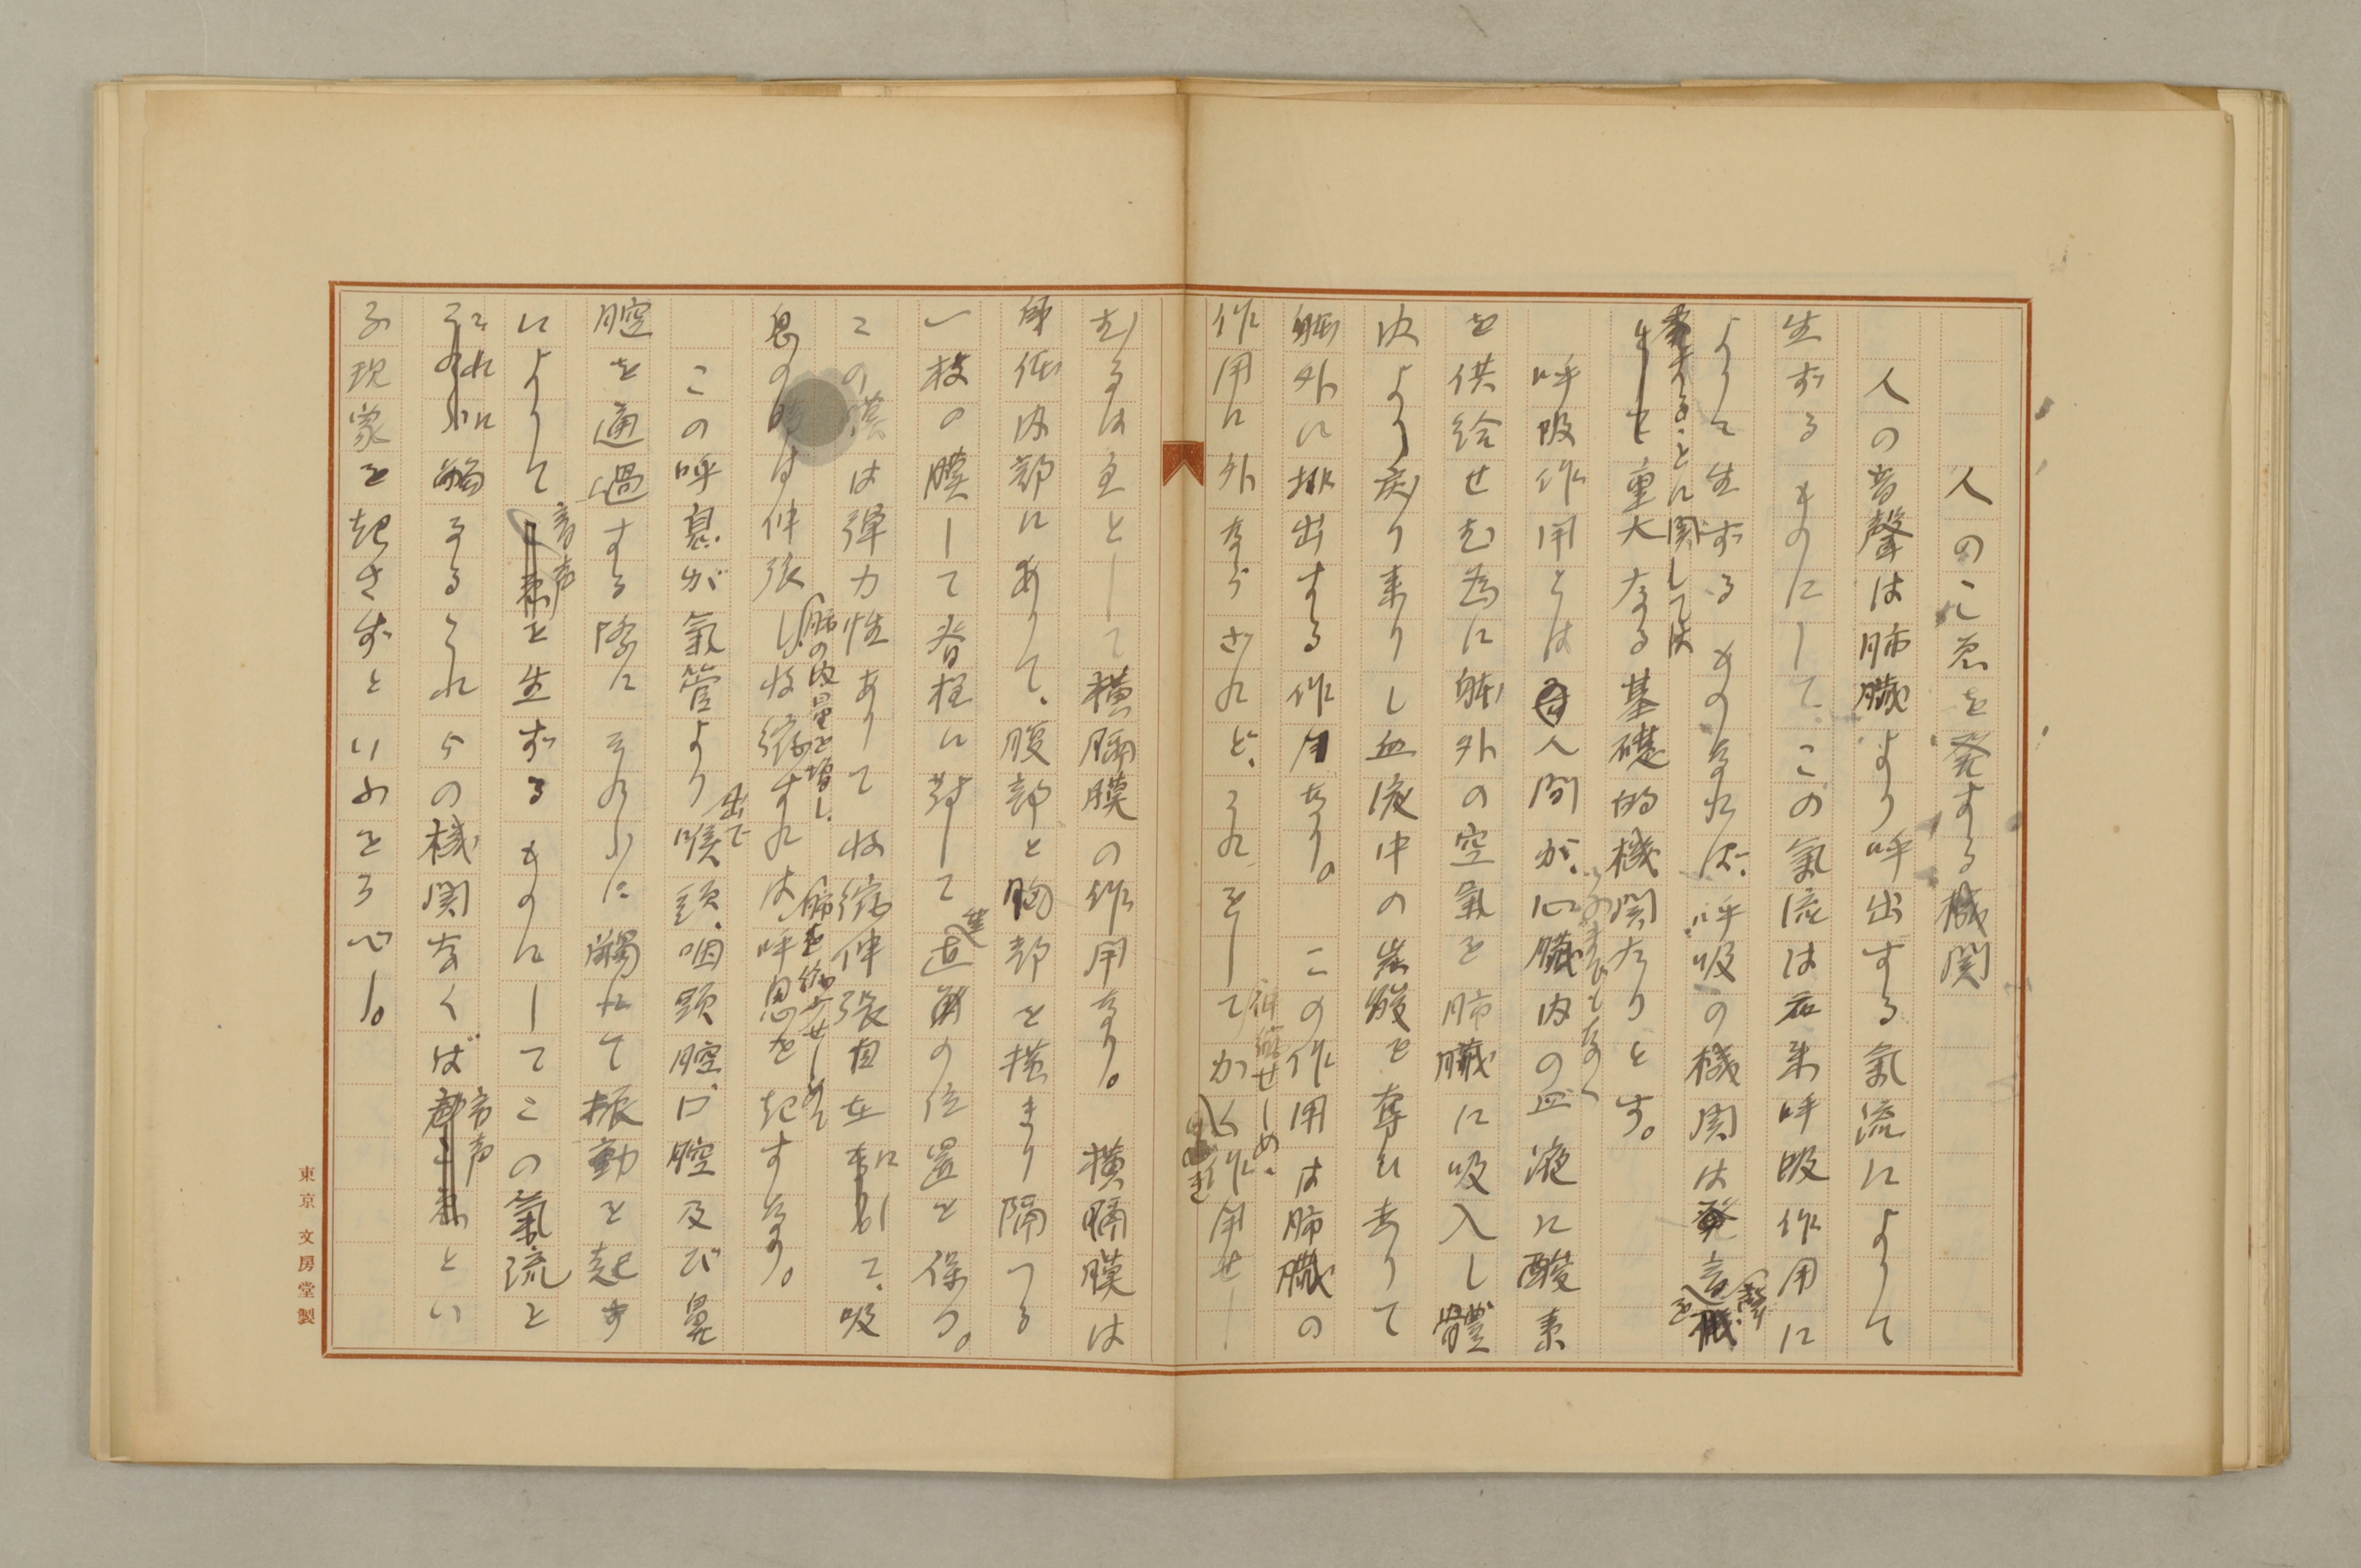 人のこゑを発する機関
人の音聲は肺臓より呼出する氣流によりて
生ずるものにして、この氣流は元来呼吸作用に
よりて生ずるものなれば、呼吸の機関は発音
聲を
することに関しては
重大なる基礎的機関たりとす。
呼吸作用とは人間が、心臓内の血液に酸素
たえまなく
を供給せむ為に躰外の空氣を肺臓に吸入し體
内より戻り来りし血液中の炭酸を奪ひ去りて
躰外に排出する作用なり。この作用は肺臓の
作用に外ならざれど、それをしてかく作用せし
伸縮せしめ、
むるは主として横隔膜の作用なり。横隔膜は
身体内部にありて、腹部と胸部とを横まり隔つる
一枚の膜して脊柱に対して直角の位置を保つ。
この膜は弾力性ありて收縮伸張自在にして、吸
息の時は伸張し收縮すれば呼息を起すなり。
肺の内量を増し、
肺を縮少せしめて
この呼息が氣管より喉頭、咽頭腔、口腔及び鼻
出で
腔を通過する際にそれらに觸れて振動を起す
によりて音声を生ずるものにしてこの氣流と
これに觸るるそれらの機関なくば音声とい
ふ現象を起さずといふところべし。
東京 文房堂製